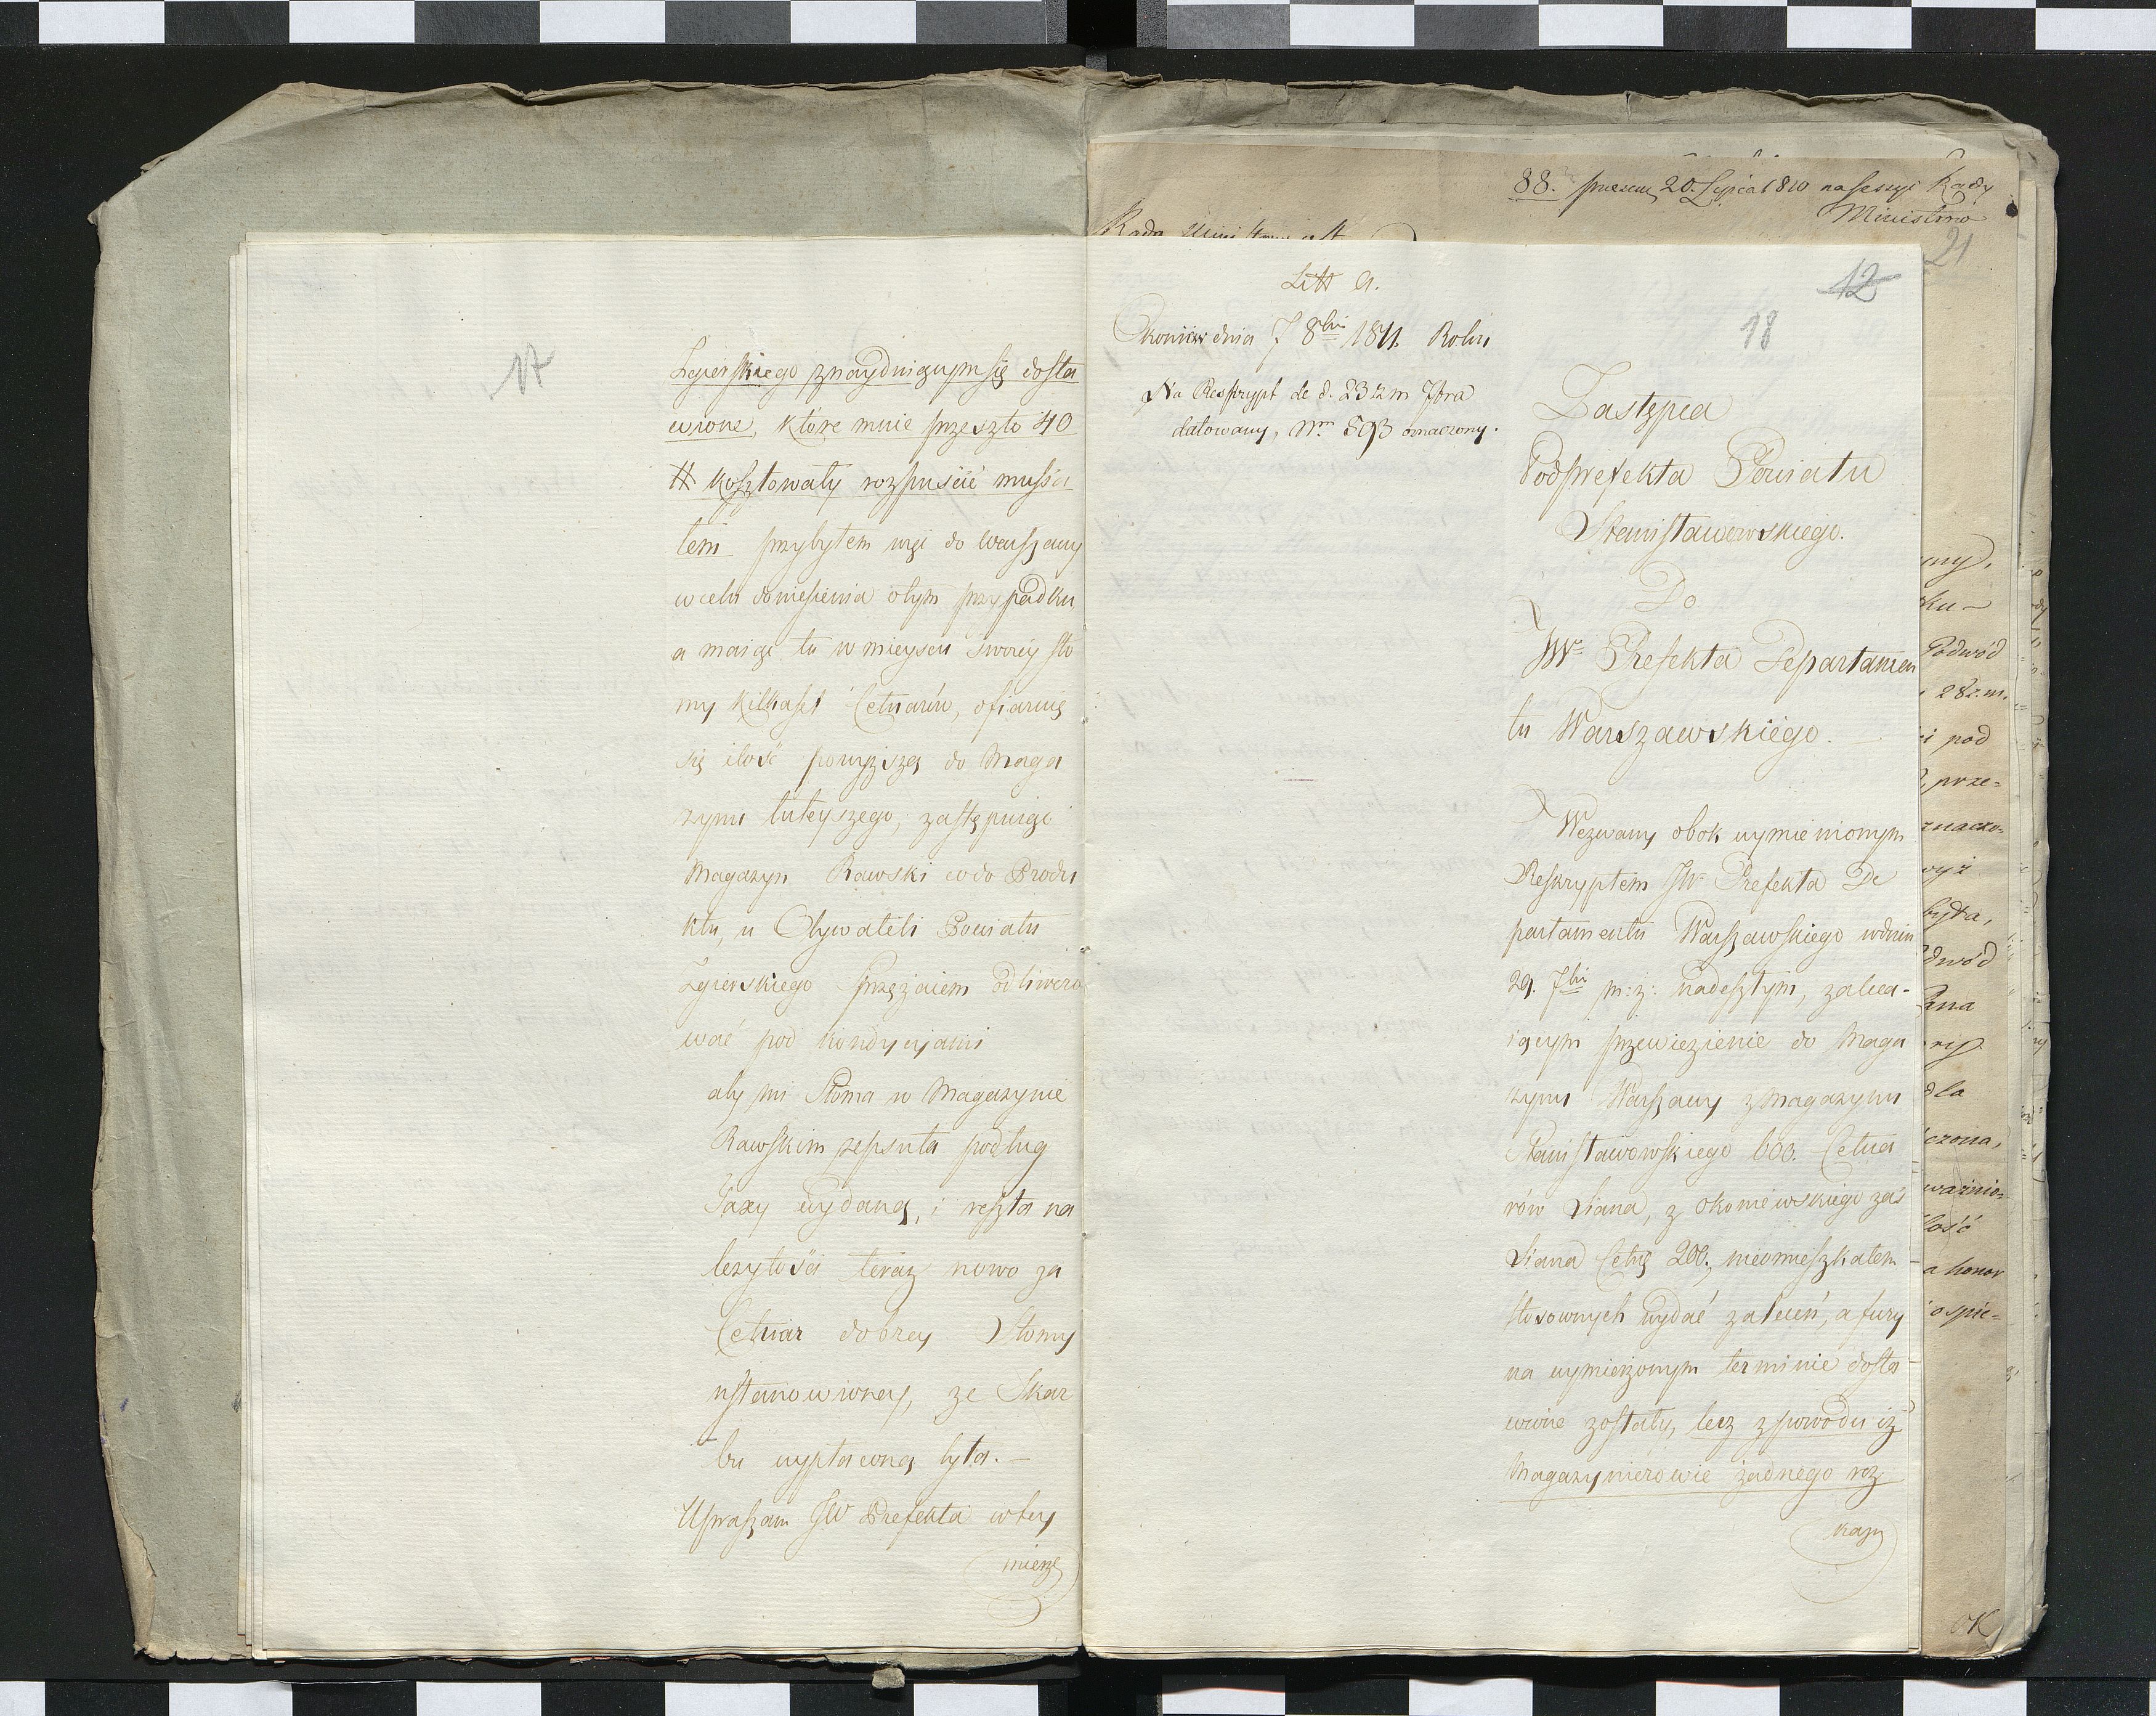 17
Zgierskiego znayduiącym się dosta
wione, które mnie przeszło 40
# kosztowały rozpuścić musia
łem przybyłem więc do Warszawy
w celu doniesienia o tym przypadku
a maiąc tu w mieyscu swoiey sło
my kilkaset Cetnarów, ofiaruię
się ilość powyższą do Maga
zynu tuteyszego, zastępuiąc
Magazyn Rawski co do Produ
ktu, u Obywateli Powiatu
Zgierskiego liwero
wać pod kondycyami
aby mi Słoma w Magazynie
Rawskim zepsuta podług
Taxy wydaną, i reszta na
leżytości teraz nowo za
Cetnar dobrey Słomy
ustanowioney, ze Skar
bu wypłaconą była. —
Upraszam JW Prefekta w tey
mierze
88. 20. Lipca 1810 na sessyi Rady
Ministrow
21
Litt A.
12
18
Okoniew dnia 7 8bri 1811. Roku
Na Reskrypt de d. 23 z m 7bra
datowany, Nrm 593 oznaczony.
Zastępca
Podprefekta Powiatu
Stanisławowskiego.
Do
JWo Prefekta Departamen
tu Warszawskiego.
Wezwany obok wymienionym
Reskryptem JWo Prefekta De
partamentu Warszawskiego w dniu
29. 7bri nadeszłym, zaleca-
iącym przewiezienie do Maga
zynu Warszawy z Magazynu
Stanisławowskiego 600. Cetna
rów Siana, z Okoniewskiego zaś
Siana Cetn 200., nieomieszkałem
stosownych wydać zaleceń, a fury
na wymierzonym terminie dosta-
wione zostały, lecz z powodu iż
Magazynierowie żadnego roz
kazu
Podwód
28 z. m.
i pod
prze=
znaczo=
była,
Pana
dla
czona,
ważnio=
ilość
a honor
OK